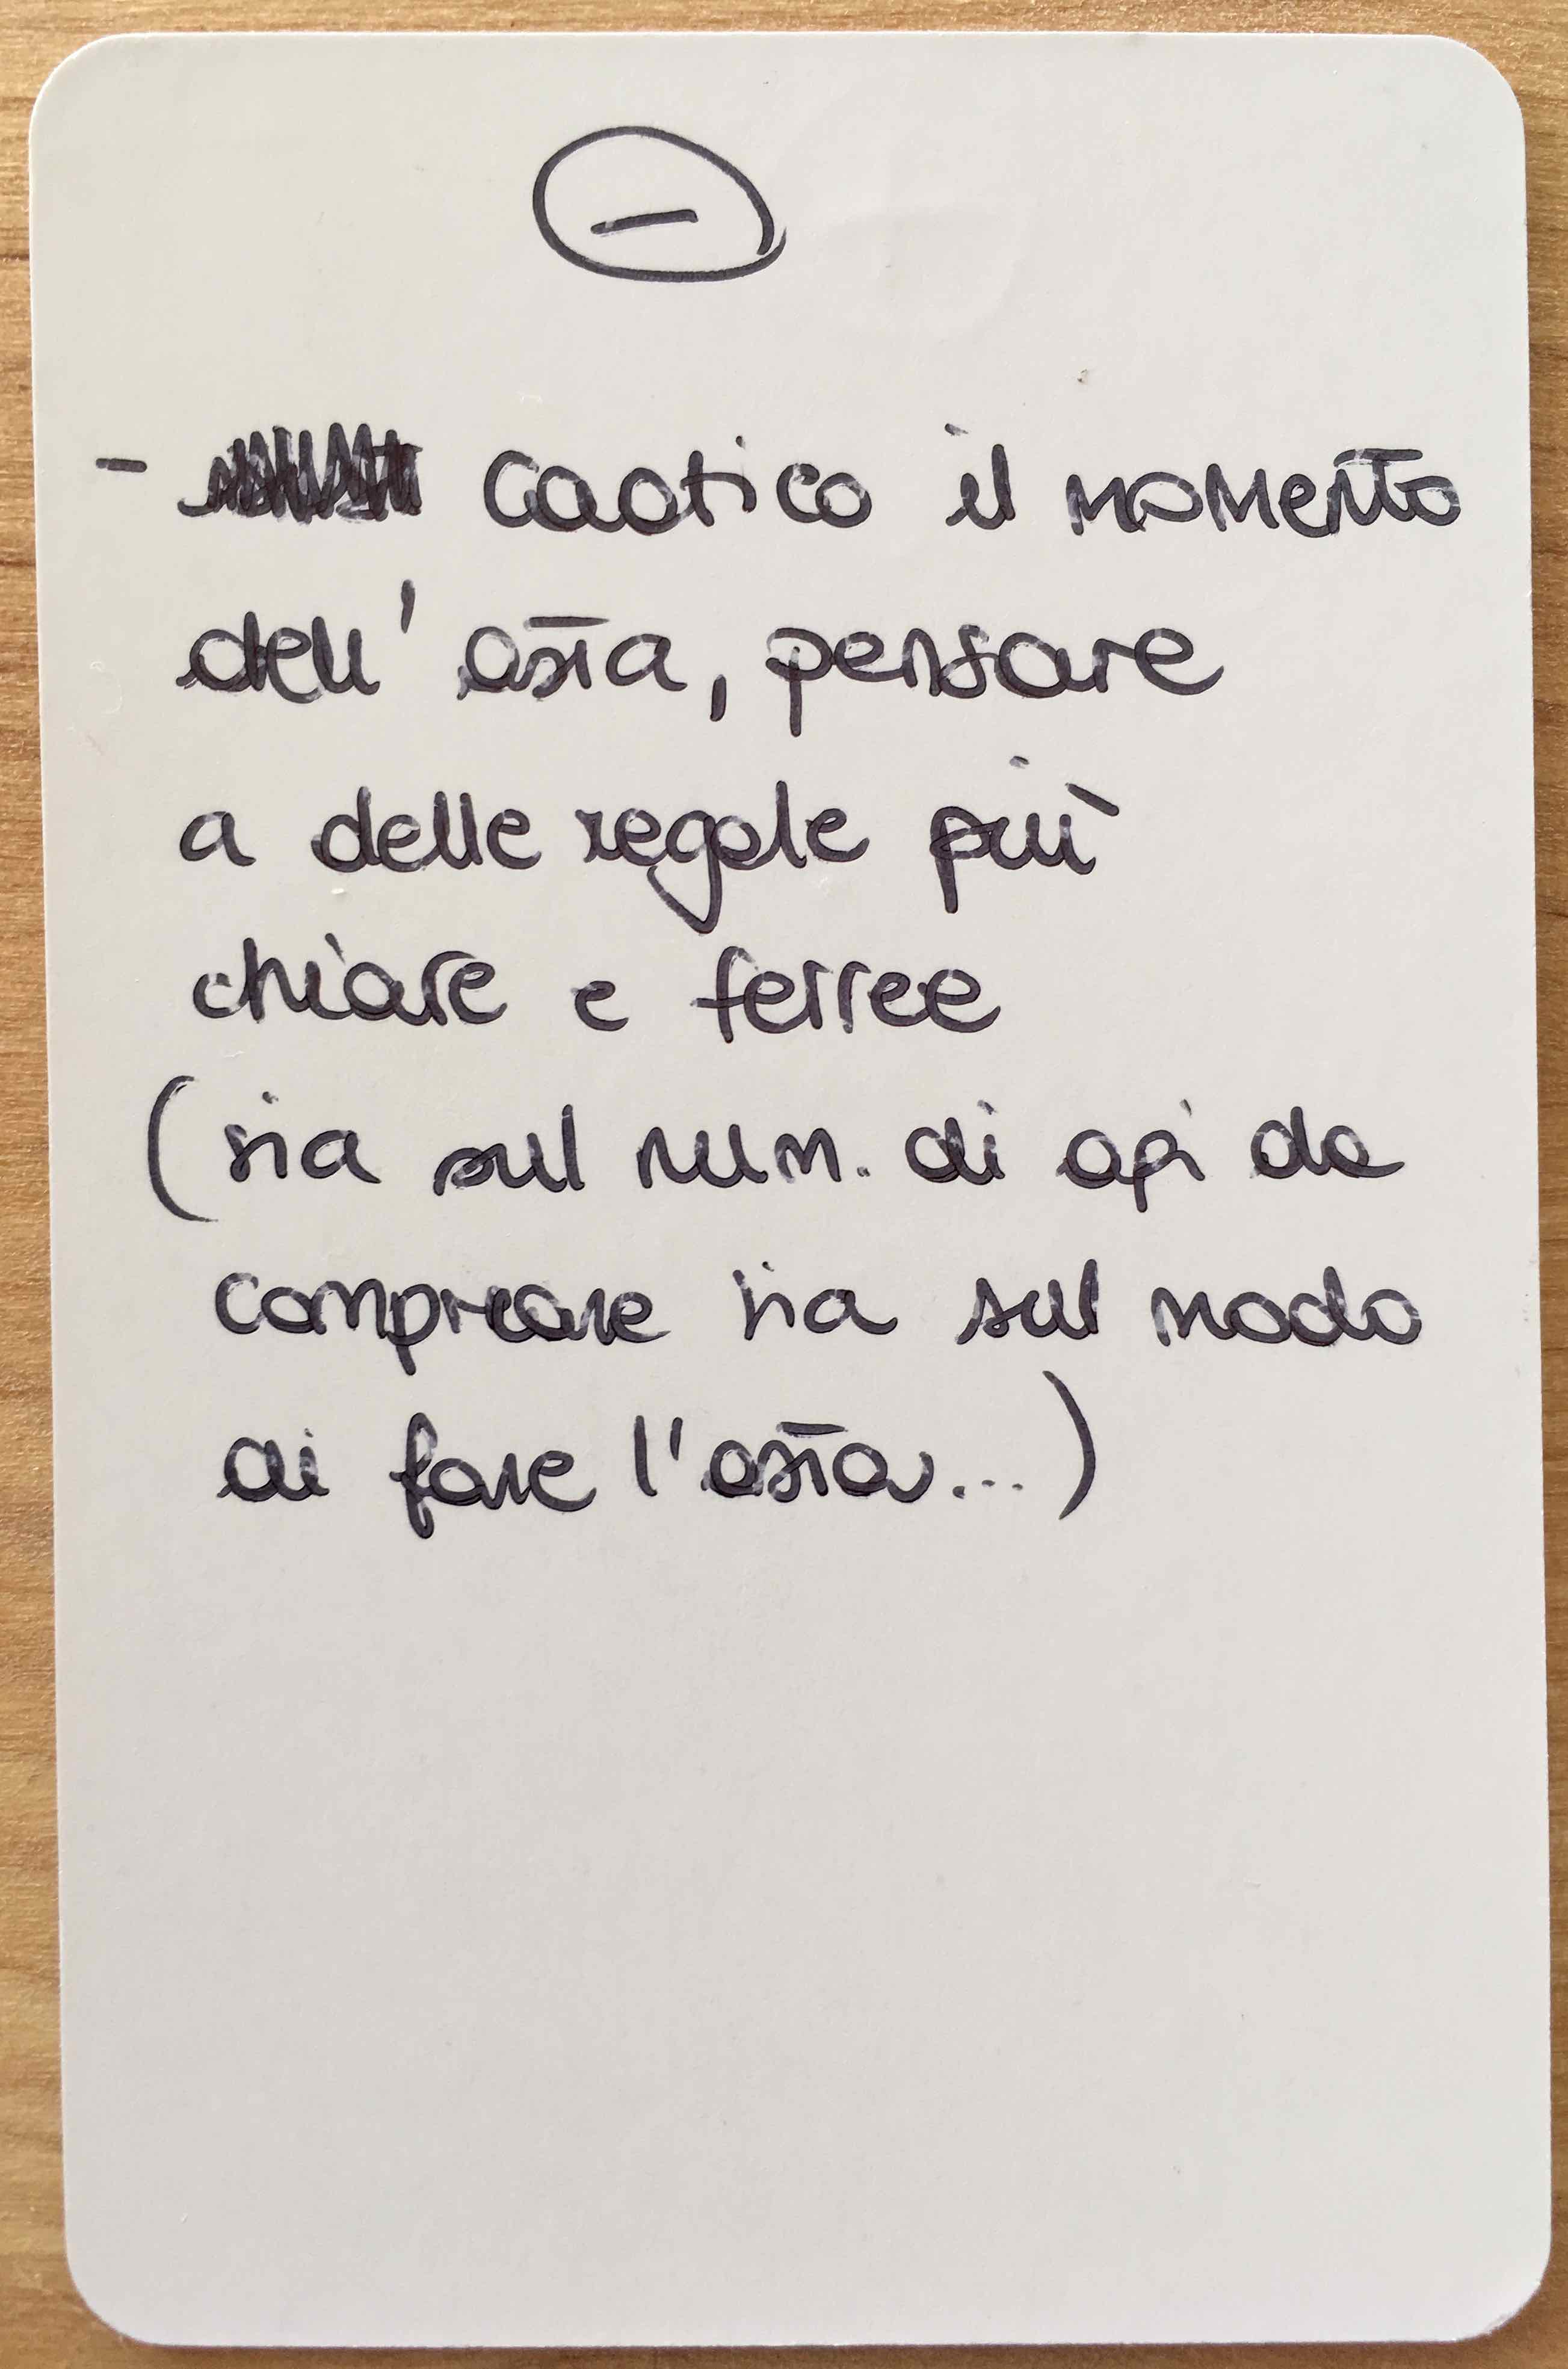 -
- caotico il momento
dell'asta, pensare
a delle regole più
chiare e ferree
(sia sul num. di api da
compreare sia sul modo
di fare l'asta...)